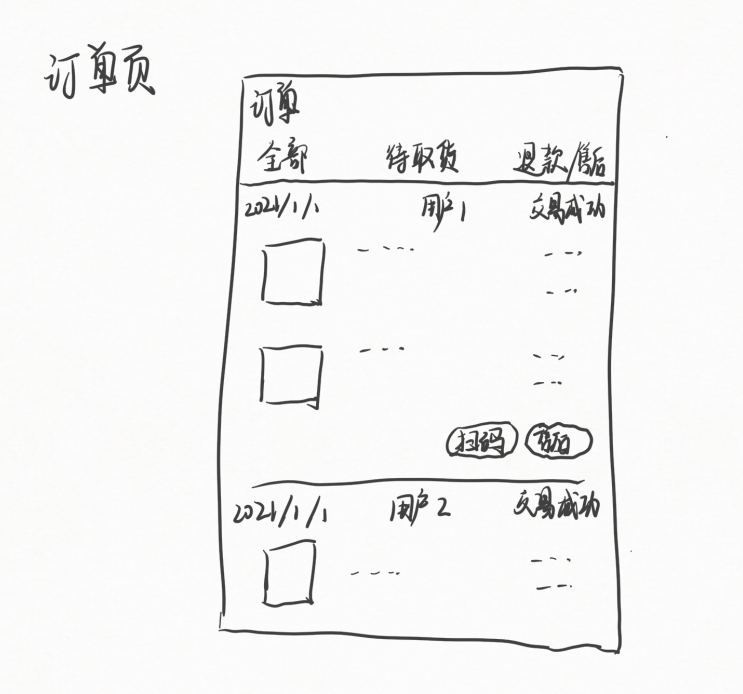 订单页
订单
全部 待取货 退款/售后
2021/1/1 用户1 交易成功
扫码 售后
2021/1/1 用户2 交易成功